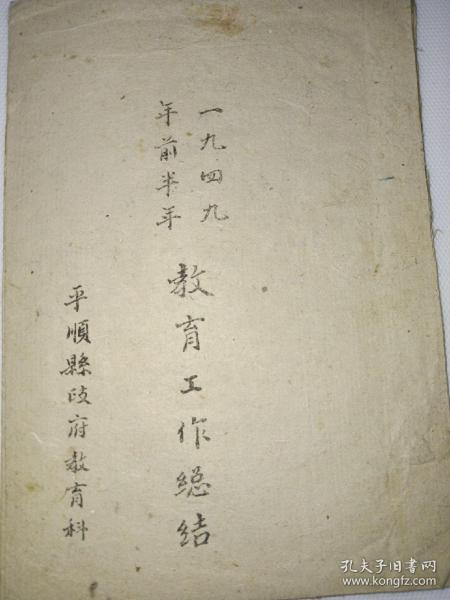 一九四九
年前半年
教育工作总结
平順縣政府教育科
孔夫子旧书网
www.kongfz.com